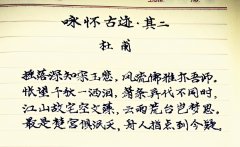 咏怀古迹·其二
杜甫
摇落深知宋玉悲，风流儒雅亦吾师。
怅望千秋一洒泪，萧条异代不同时。
江山故宅空文藻，云雨荒台岂梦思。
最是楚宫俱泯灭，舟人指点到今疑。